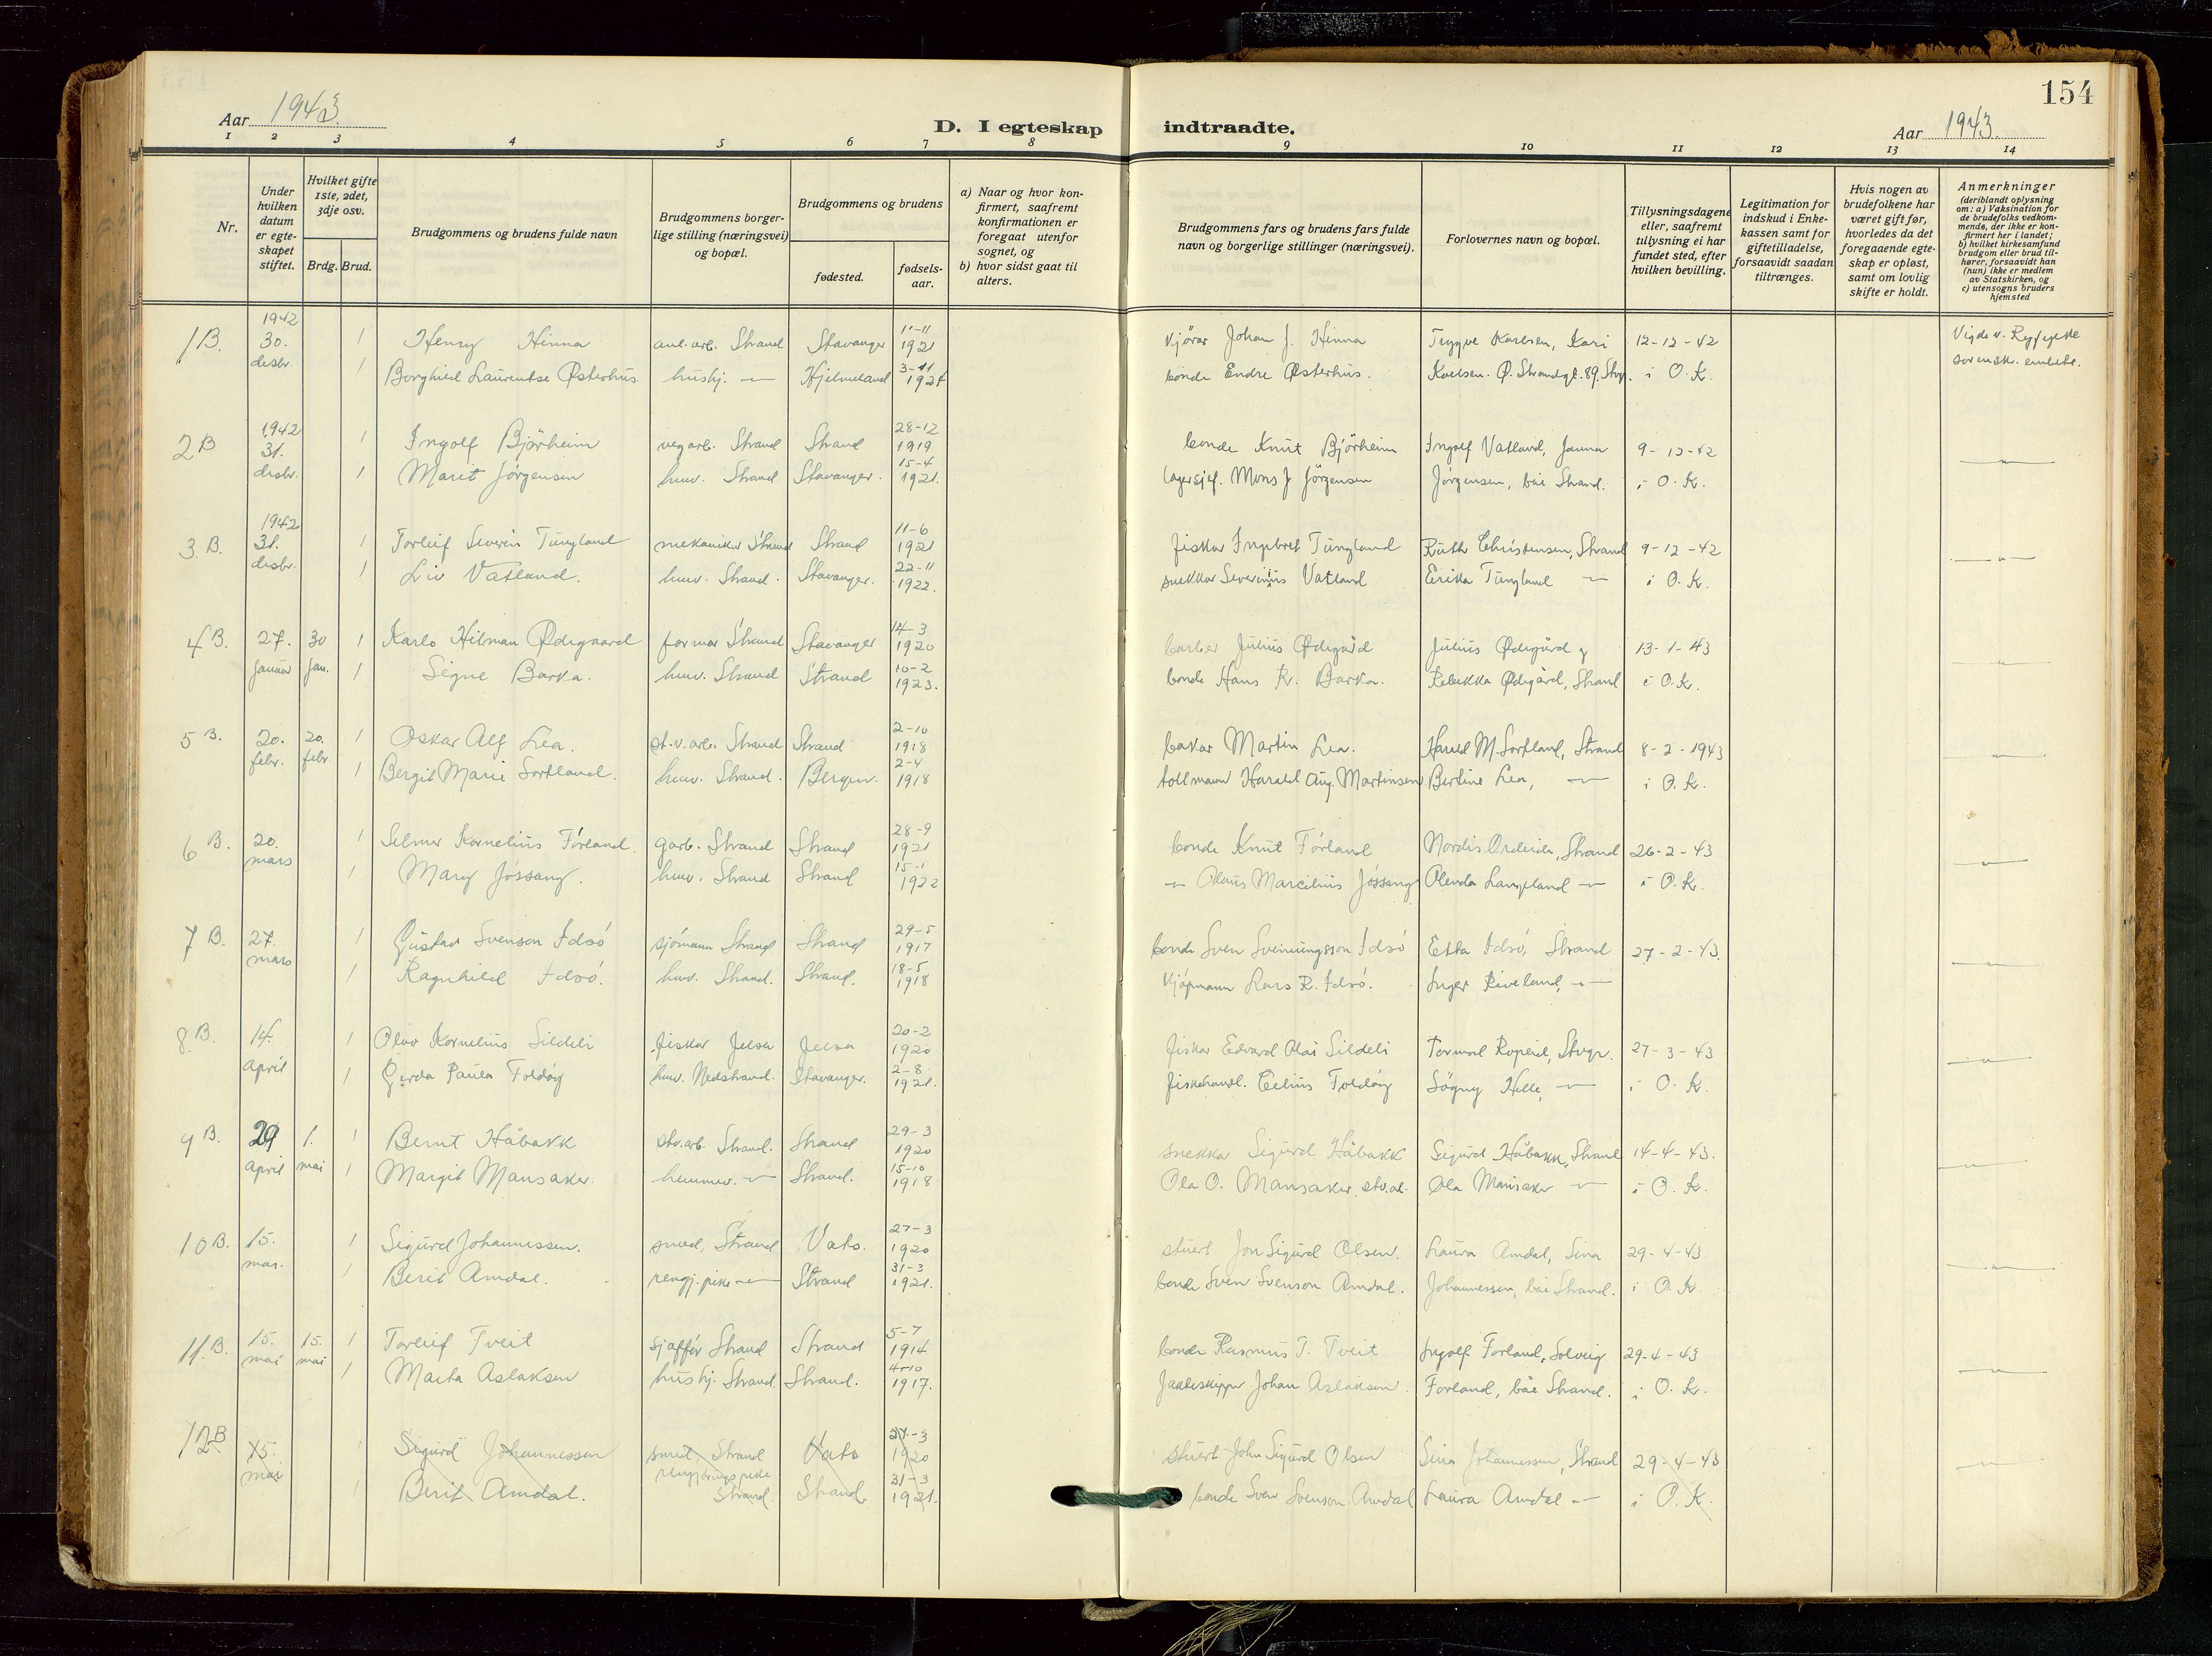 154
Aar 1943.
D. I egteskap indtraadte.
Aar 1943.
1 2 3 4 5 6 7 8 9 10 11 12 13 14
Nr.
Under hvilken datum er egteskapet stiftet.
Hvilket gifte 1ste, 2det, 3dje osv.
Brdg. Brud.
Brudgommens og brudens fulde navn
Brudgommens borgerlige stilling (næringsvei) og bopæl.
Brudgommens og brudens
fødested.
fødselsaar.
a) Naar og hvor konfirmert, saafremt konfirmationen er foregaat utenfor sognet, og
b) hvor sidst gaat til alters.
Brudgommens fars og brudens fars fulde navn og borgerlige stillinger (næringsvei).
Forlovernes navn og bopæl.
Tillysningsdagene eller, saafremt tillysning ei har fundet sted, efter hvilken bevilling.
Legitimation for indskud i Enkekassen samt for giftetilladelse, forsaavidt saadan tiltrænges.
Hvis nogen av brudefolkene har været gift før, hvorledes da det foregaaende egteskap er opløst, samt om lovlig skifte er holdt.
Anmerkninger (deriblandt oplysning om: a) Vaksination for de brudefolks vedkommende, der ikke er konfirmert her i landet; b) hvilket kirkesamfund brudgom eller brud tilhører, forsaavidt han (hun) ikke er medlem av Statskirken, og c) utensogns bruders hjemsted
1 B. 1942 30. desbr. 1 Henry Hinna anl.arb. Strand Stavanger 11-11 1921 kjörar Johan J. Hinna Trygve Karlsen, Kari 12-12-42 Vigde v. Ryfylke
1 Borghild Laurentse Østerhus. hushj. — Hjelmeland 3-11 1921 bonde Endre Østerhus. Karlsen. Ø. Strandgt. 89. Stvgr. i O.K. sorenskr. embete.
2 B 1942 31. desbr. 1 Ingolf Björheim vegarb. Strand Strand 28-12 1919 bonde Knut Björheim Ingolf Vatland, Janna 9-12-42 —"—
1 Marit Jörgensen huv. Strand Stavanger. 15-4 1921. lagersjef. Mons J Jörgensen Jörgensen, båe Strand. i O.K.
3 B. 1942 31. desbr. 1 Torleif Severin Tungland mekaniker Strand Strand 11-6 1921 fiskar Ingebret Tungland Ruth Christensen, Strand 9-12-42 —"—
1 Liv Vatland. huv. Strand. Stavanger. 22-11 1922. snekkar Severinus Vatland Erika Tungland — i O.K.
4 B. 27. januar 30 jan. 1 Karlo Hilman Ødegaard formar Strand Stavanger 14-3 1920 barber Julius Ødegård Julius Ødegård og 13-1-43 —"—
1 Signe Barka. huv. Strand Strand 10-2 1923. bonde Hans R. Barka. Rebekka Ødegård, Strand i O.K.
5 B. 20. febr. 20. febr 1 Oskar Alf Lea. st.v.arb. Strand Strand 2-10 1918 bakar Martin Lea. Harald M. Sortland, Strand 8-2-1943 —"—
1 Bergit Marie Sortland. huv. Strand. Bergen. 2-4 1918 tollmann Harald Aug. Martinsen Bertine Lea, — i O.K.
6 B. 20. mars 1 Selmer Kornelius Förland. garb. Strand Strand 28-9 1921 bonde Knut Förland Nordis Ordeide, Strand 26-2-43 —"—
1 Mary Jössang. huv. Strand Strand 15-1 1922 —"— Olaus Marcelius Jössang Olenda Langeland — i O.K.
7 B. 27. mars 1 Gustav Svenson Idsö sjömann Strand Strand 29-5 1917 bonde Sven Sveinungsson Idsö Etta Idsö, Strand 27-2-43. —"—
1 Ragnhild Idsö. huv. Strand. Strand. 18-5 1918 Kjöpmann Lars R. Idsö. Inger Riveland, —
8 B. 14. april 1 Olav Kornelius Sildeli fiskar Jelsa Jelsa 20-2 1920 fiskar Edvard Olai Sildeli Tormod Ropeid, Stvgr. 27-3-43 —"—
1 Gerda Paula Foldöy huv. Nedstrand. Stavanger. 2-8 1921. fiskehandl. Elius Foldöy Sögny Helle, — i O.K.
9 B. 29 april 1. mai 1 Bernt Håbakk stv.arb. Strand. Strand 29-3 1920 snekka Sigurd Håbakk Sigurd Håbakk, Strand 14-4-43. —"—
1 Margit Mansaker. hennev. — Strand. 15-10 1918 Ola O. Mansaker. stv.ar. Ola Mansaker — i O.K.
10 B. 15. mai. 1 Sigurd Johannessen. smed, Strand Vats. 27-3 1920 stuert Jon Sigurd Olsen. Laura Amdal, Sina 29-4-43 —"—
1 Berit Amdal. rengj.pike — Strand 31-3 1921. bonde Sven Svenson Amdal. Johannessen, båe Strand. i O.K.
11 B. 15. mai 15. mai 1 Torleif Tveit sjafför Strand Strand 5-7 1914 bonde Rasmus T. Tveit Ingolf Forland, Solveig 29-4-43 —"—
1 Marta Aslaksen hushj. Strand. Strand. 4-10 1917. Jakteskipper Johan Aslaksen. Forland, båe Strand. i O.K.
12 B 15. mai 1 Sigurd Johannessen smed, Strand Vats 27-3 1920 stuert John Sigurd Olsen Sina Johannessen, Strand 29-4-43 —"—
1 Berit Amdal. rengjöringspike Strand. Strand. 31-3 1921. bonde Sven Svenson Amdal Laura Amdal —"— i O.K.